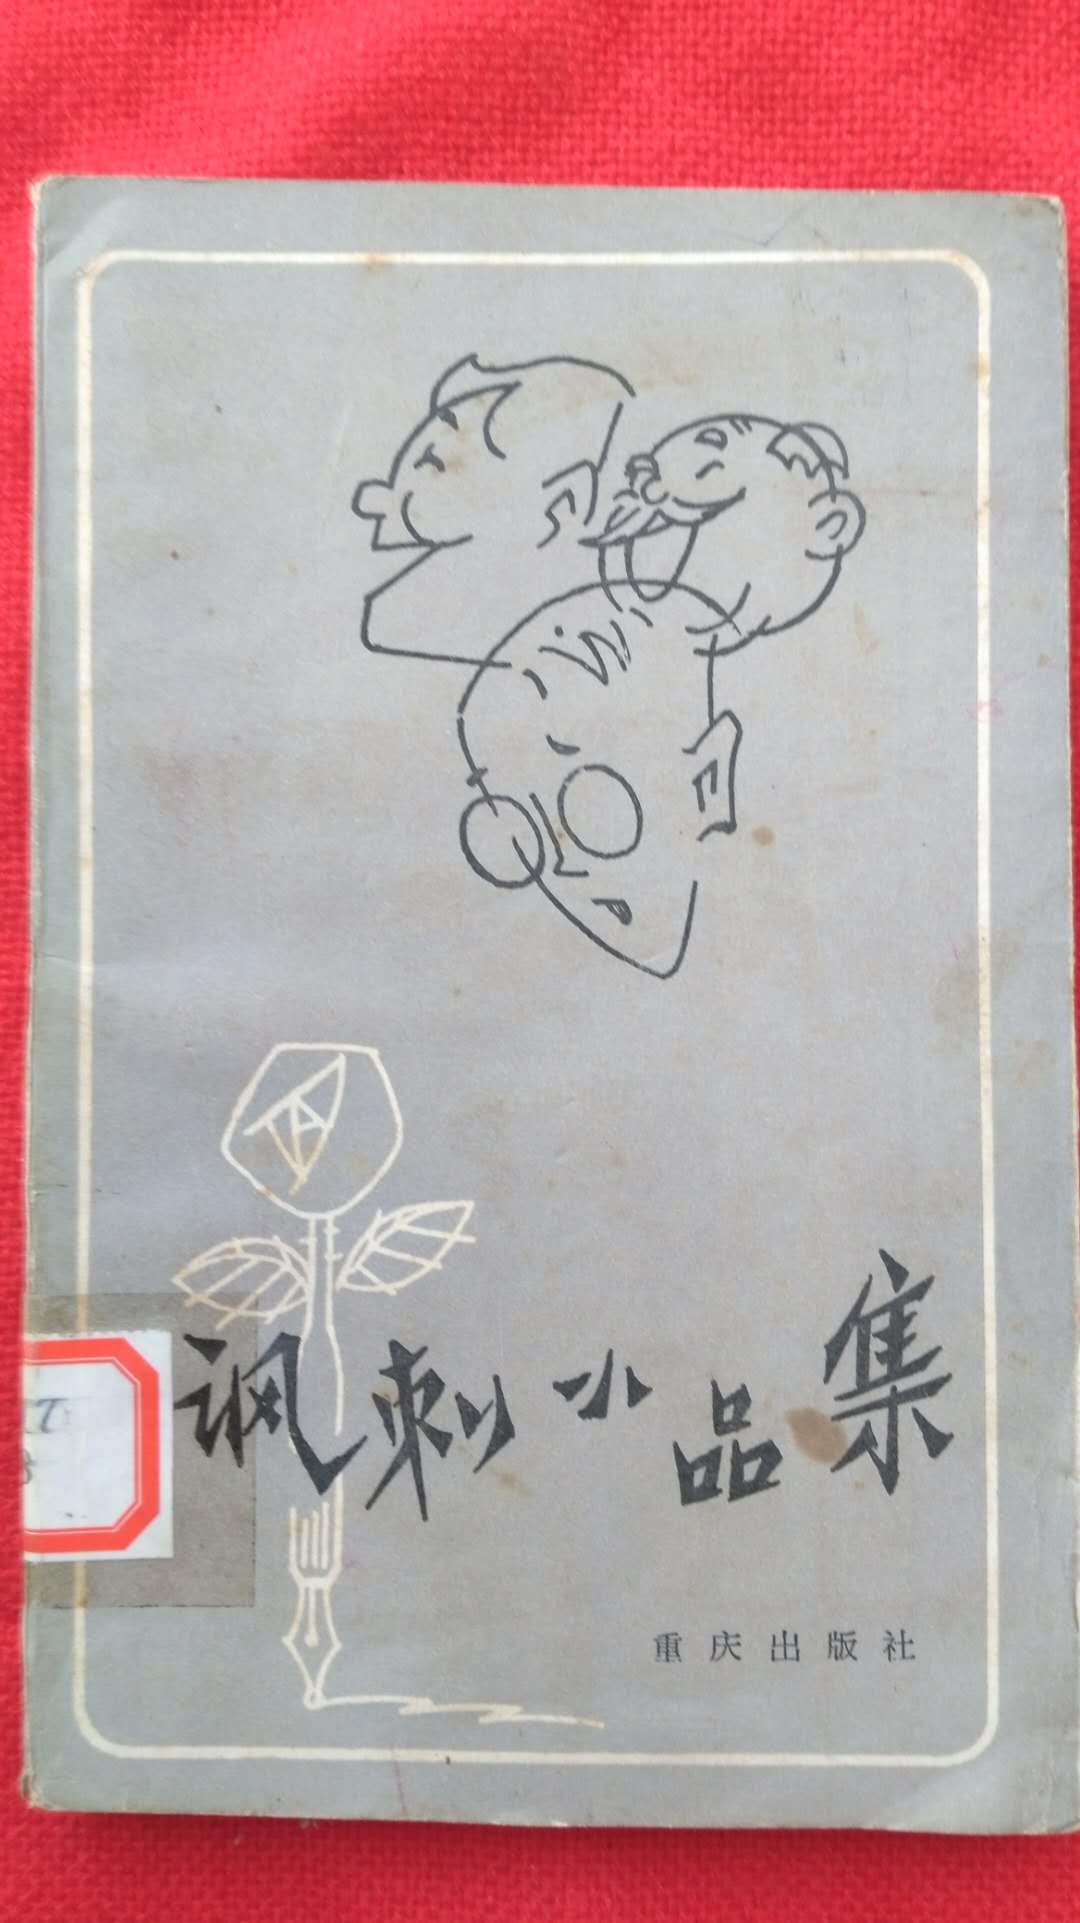 讽刺小品集
重庆出版社